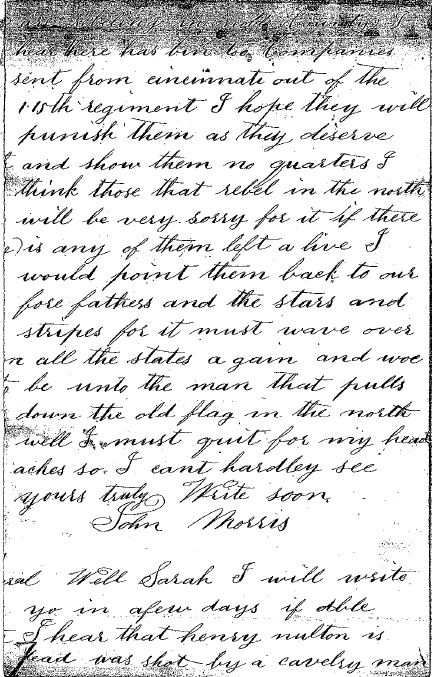 in
hear here has bin two Companies
sent from cincinnati out of the
115th regiment I hope they will
punish them as they deserve
and show them no quarters I
think those that rebel in the north
will be very sorry for it if there
is any of them left a live I
would point them back to our
fore fathers and the stars and
stripes for it must wave over
all the states a gain and woe
be unto the man that pulls
down the old flag in the north
well I must quit for my head
aches so I cant hardley see
yours truly Write soon
John Morris
Well Sarah I will write
yo in afew days if able
I hear that henry nulton is
dead was shot by a cavelry man